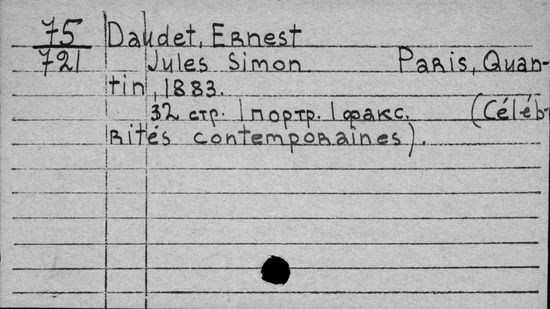 75 Daudet, Ernest
721 Jules Simon. Paris, Quan-
tin, 1883.
32 стр. 1 портр. 1 факс. (Céléb-
rités contemporaines).